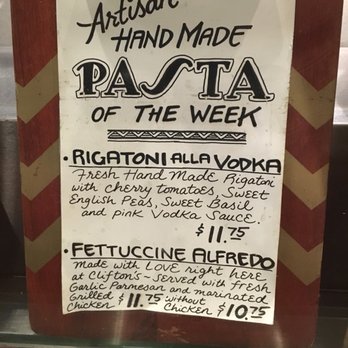 Artisan
HAND MADE
PASTA
OF THE WEEK
• RIGATONI ALLA VODKA
Fresh Hand Made Rigatoni
with cherry tomatoes, Sweet
English Peas, Sweet Basil
and pink Vodka Sauce.
$11.75
• FETTUCCINE ALFREDO
Made with LOVE right here
at Clifton's - Served with fresh
Garlic Parmesan and marinated
Grilled Chicken $11.75 without Chicken $10.75